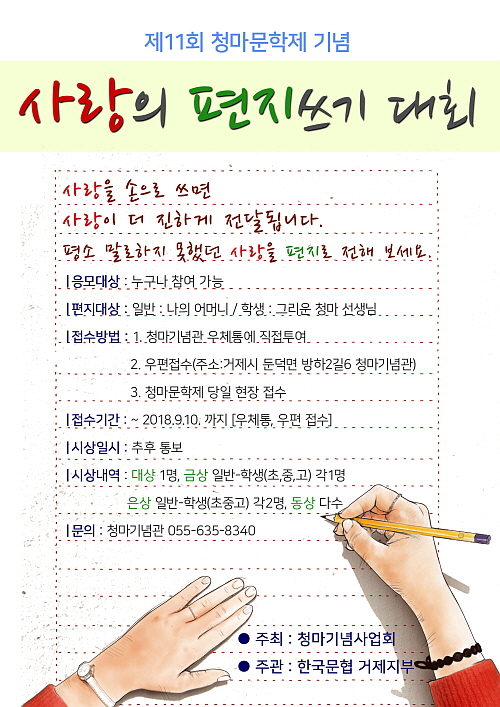 제11회 청마문학제 기념
사랑의 편지쓰기 대회
사랑을 손으로 쓰면
사랑이 더 진하게 전달됩니다.
평소 말로하지 못했던 사랑을 편지로 전해 보세요.
|응모대상 : 누구나 참여 가능
|편지대상 : 일반 : 나의 어머니 / 학생 : 그리운 청마 선생님
|접수방법 : 1. 청마기념관 우체통에 직접투여
2. 우편접수(주소:거제시 둔덕면 방하2길6 청마기념관)
3. 청마문학제 당일 현장 접수
|접수기간 : ~ 2018.9.10. 까지 [우체통, 우편 접수]
|시상일시 : 추후 통보
|시상내역 : 대상 1명, 금상 일반-학생(초,중,고) 각1명
은상 일반-학생(초중고) 각2명, 동상 다수
|문의 : 청마기념관 055-635-8340
● 주최 : 청마기념사업회
● 주관 : 한국문협 거제지부